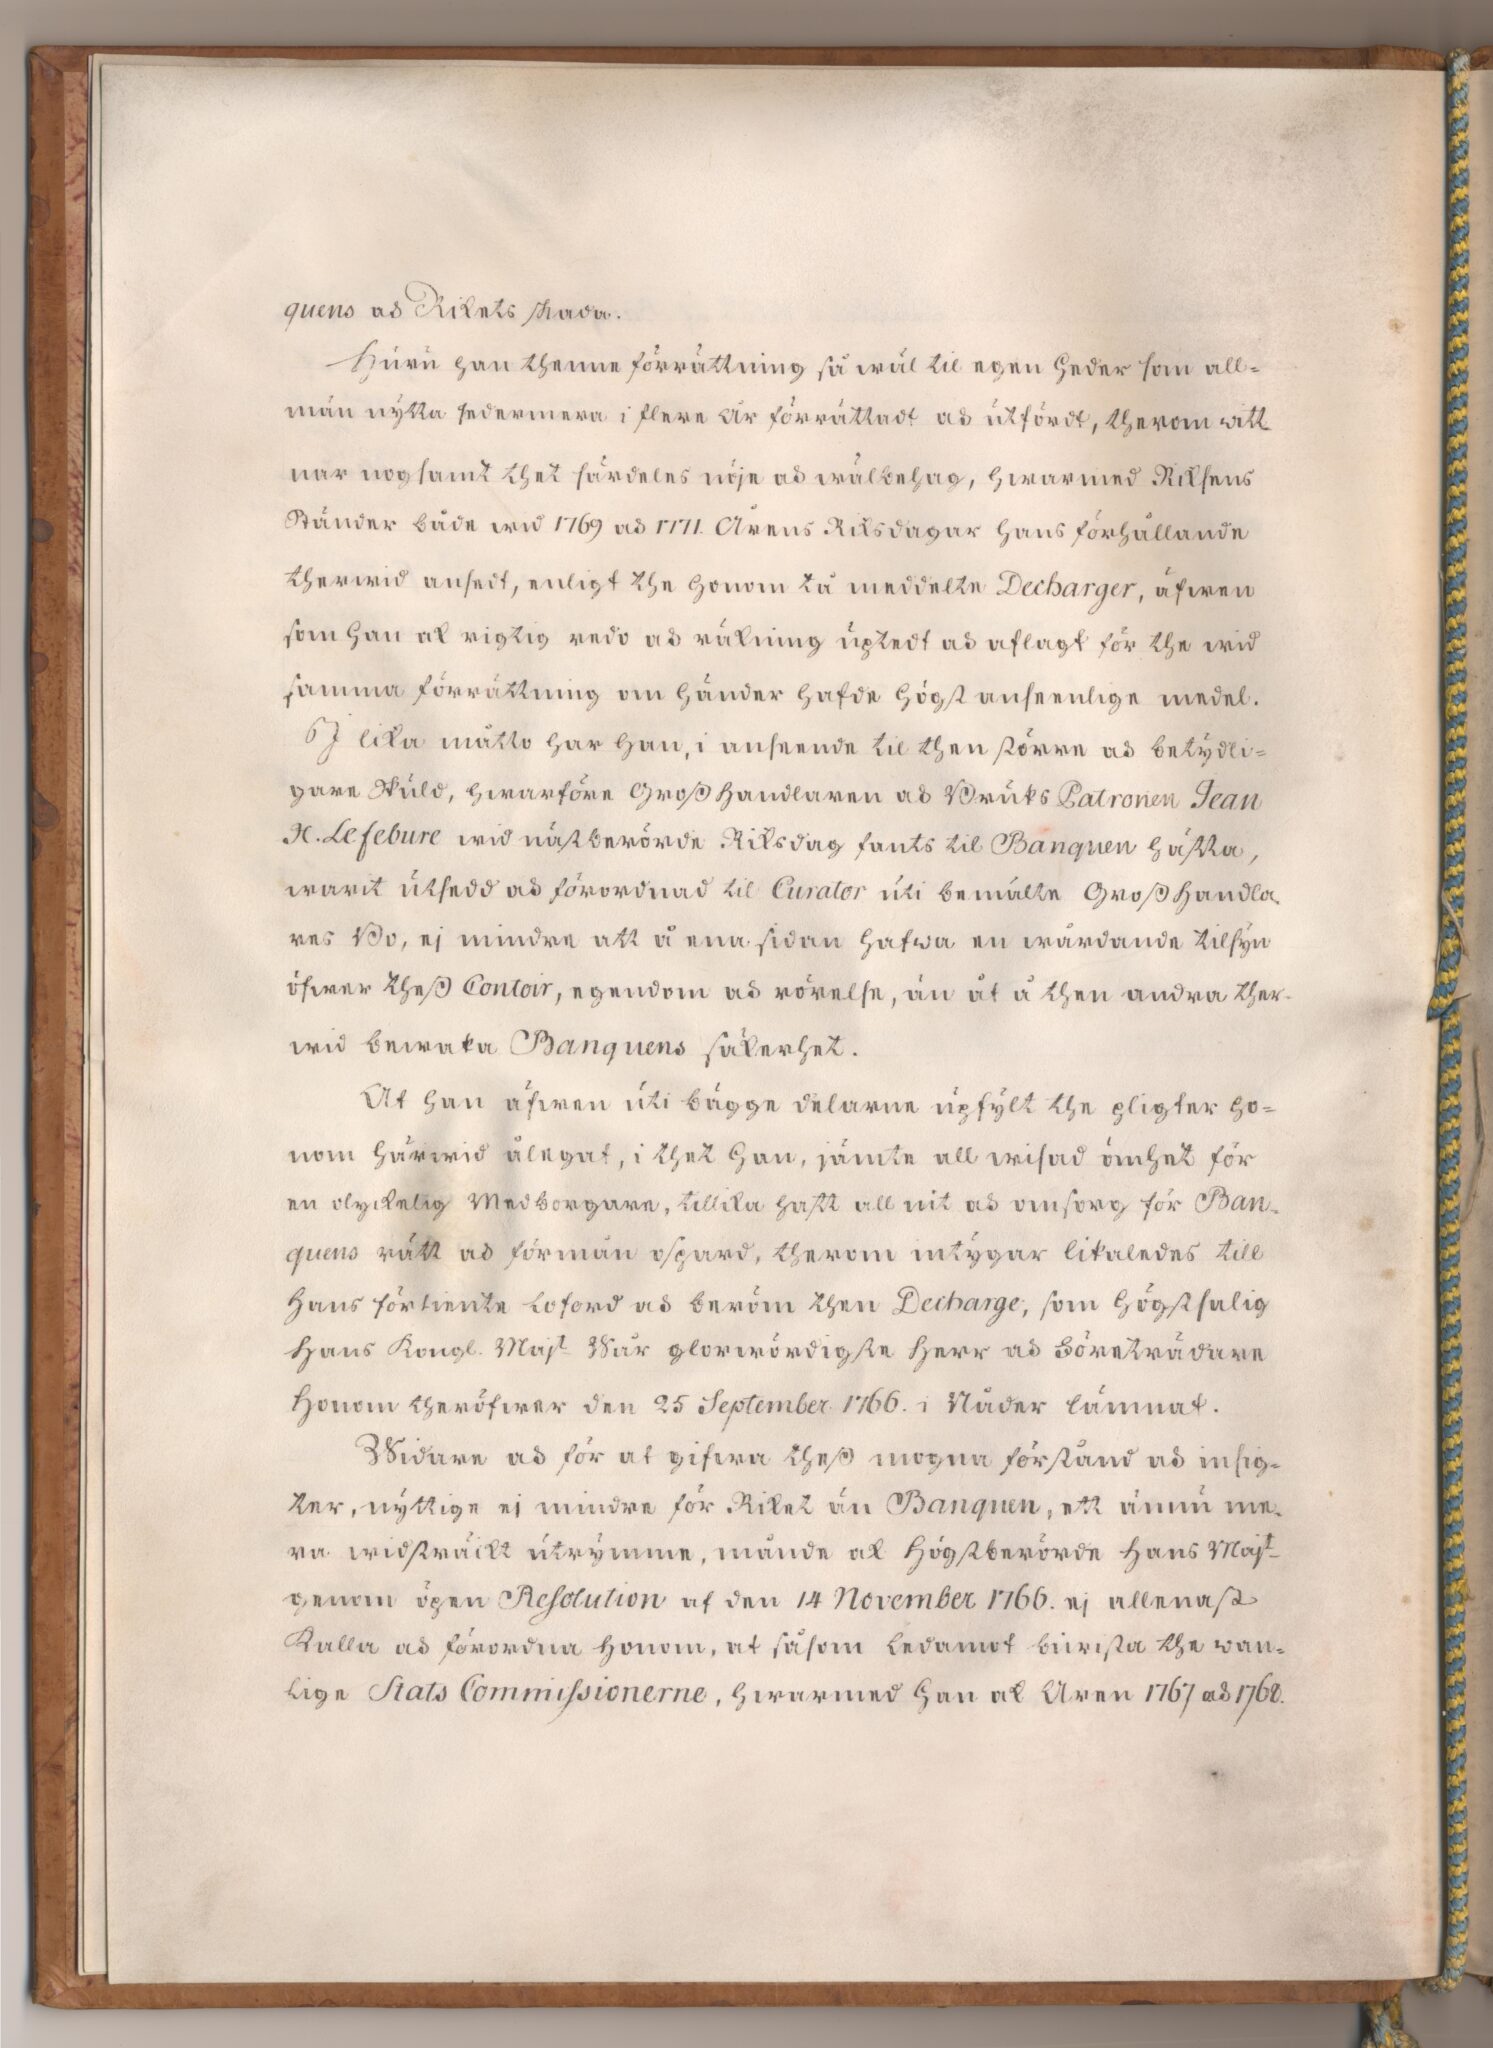 quens och Rikets skada.
Huru han thenne förrättning så wäl til egen heder som all-
män nytta sedermera i flere År förrättadt och utfördt, therom witt-
nar nogsamt thet särdeles nöje och wälbehag, hwarmed Riksens
Ständer både wid 1769 och 1771 Årens Riksdagar hans förhållande
therwid ansedt, enligt the honom tå meddelte Decharger, äfwen
som han ok rigtig redo och räkning uptedt och aflagt för the wid
samma förrättning om händer hafde högst anseenlige medel.
I lika måtto har han, i anseende til then större och betydli-
gare Skuld, hwarföre Großhandlaren och Bruks Patronen Jean
H. Lefebure wid näst berörde Riksdag fants til Banquen häfta,
warit utsedd och förordnad til Curator uti bemälte Großhandla-
res Bo, ej mindre att å ena sidan hafwa en wårdande tilsyn
öfwer theß Contoir, egendom och rörelse, än åt å then andra ther-
wid bewaka Banquens säkerhet.
At han äfwen uti bägge delarne upfylt the pligter ho-
nom härwid ålegat, i thet han, jämte all wisad ömhet för
en olyckelig Medborgare, tillika haft all nit och omsorg för Ban-
quens rätt och förmån ospard, therom intygar likaledes till
hans förtiente loford och beröm then Decharge, som högstsalig
Hans Kongl. Majt Wår glorwördigste Herr och Företrädare
Honom theröfwer den 25 September 1766. i Nåder lämnat.
Widare och för at gifwa theß mogna förstånd och insig-
ter, nyttige ej mindre för Riket än Banquen, ett ännu me-
ra widsträckt utrymme, månde ok Högstberörde Hans Majt
genom öpen Resolution af den 14 November 1766. ej allenast
Kalla och förordna Honom, at såsom Ledamot biwista the wan-
lige Stats Commissionerne, hwarmed han ok Åren 1767 och 1768.